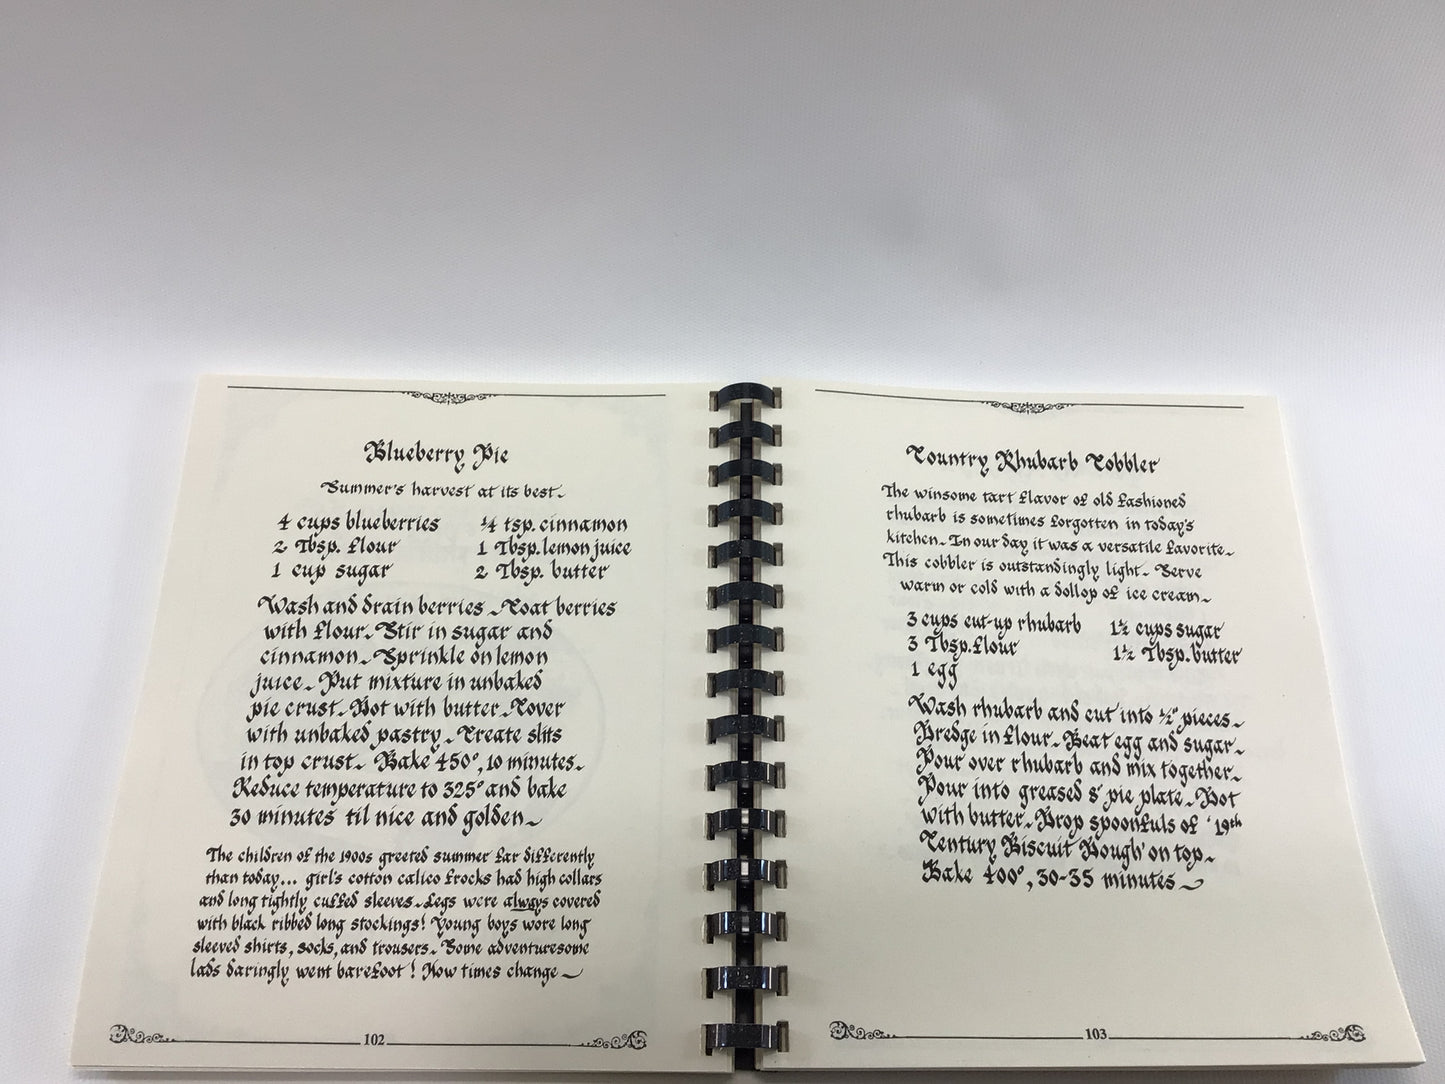 Blueberry Pie
Summer's harvest at its best~
4 cups blueberries
2 Tbsp. flour
1 cup sugar
¼ tsp. cinnamon
1 Tbsp. lemon juice
2 Tbsp. butter
Wash and drain berries~Coat berries
with flour~Stir in sugar and
cinnamon~Sprinkle on lemon
juice~Put mixture in unbaked
pie crust~Dot with butter~Cover
with unbaked pastry~Create slits
in top crust~Bake 450°, 10 minutes~
Reduce temperature to 325° and bake
30 minutes 'til nice and golden~
The children of the 1900s greeted summer far differently
than today... girl's cotton calico frocks had high collars
and long tightly cuffed sleeves~Legs were always covered
with black ribbed long stockings! Young boys wore long
sleeved shirts, socks, and trousers~Some adventuresome
lads daringly went barefoot! How times change~
102
Country Rhubarb Cobbler
The winsome tart flavor of old fashioned
rhubarb is sometimes forgotten in today's
kitchen~In our day it was a versatile favorite~
This cobbler is outstandingly light~Serve
warm or cold with a dollop of ice cream~
3 cups cut-up rhubarb
3 Tbsp. flour
1 egg
1½ cups sugar
1½ Tbsp. butter
Wash rhubarb and cut into ½" pieces~
Dredge in flour~Beat egg and sugar~
Pour over rhubarb and mix together~
Pour into greased 8" pie plate~Dot
with butter~Drop spoonfuls of '19th
Century Biscuit Dough' on top~
Bake 400°, 30-35 minutes~
103